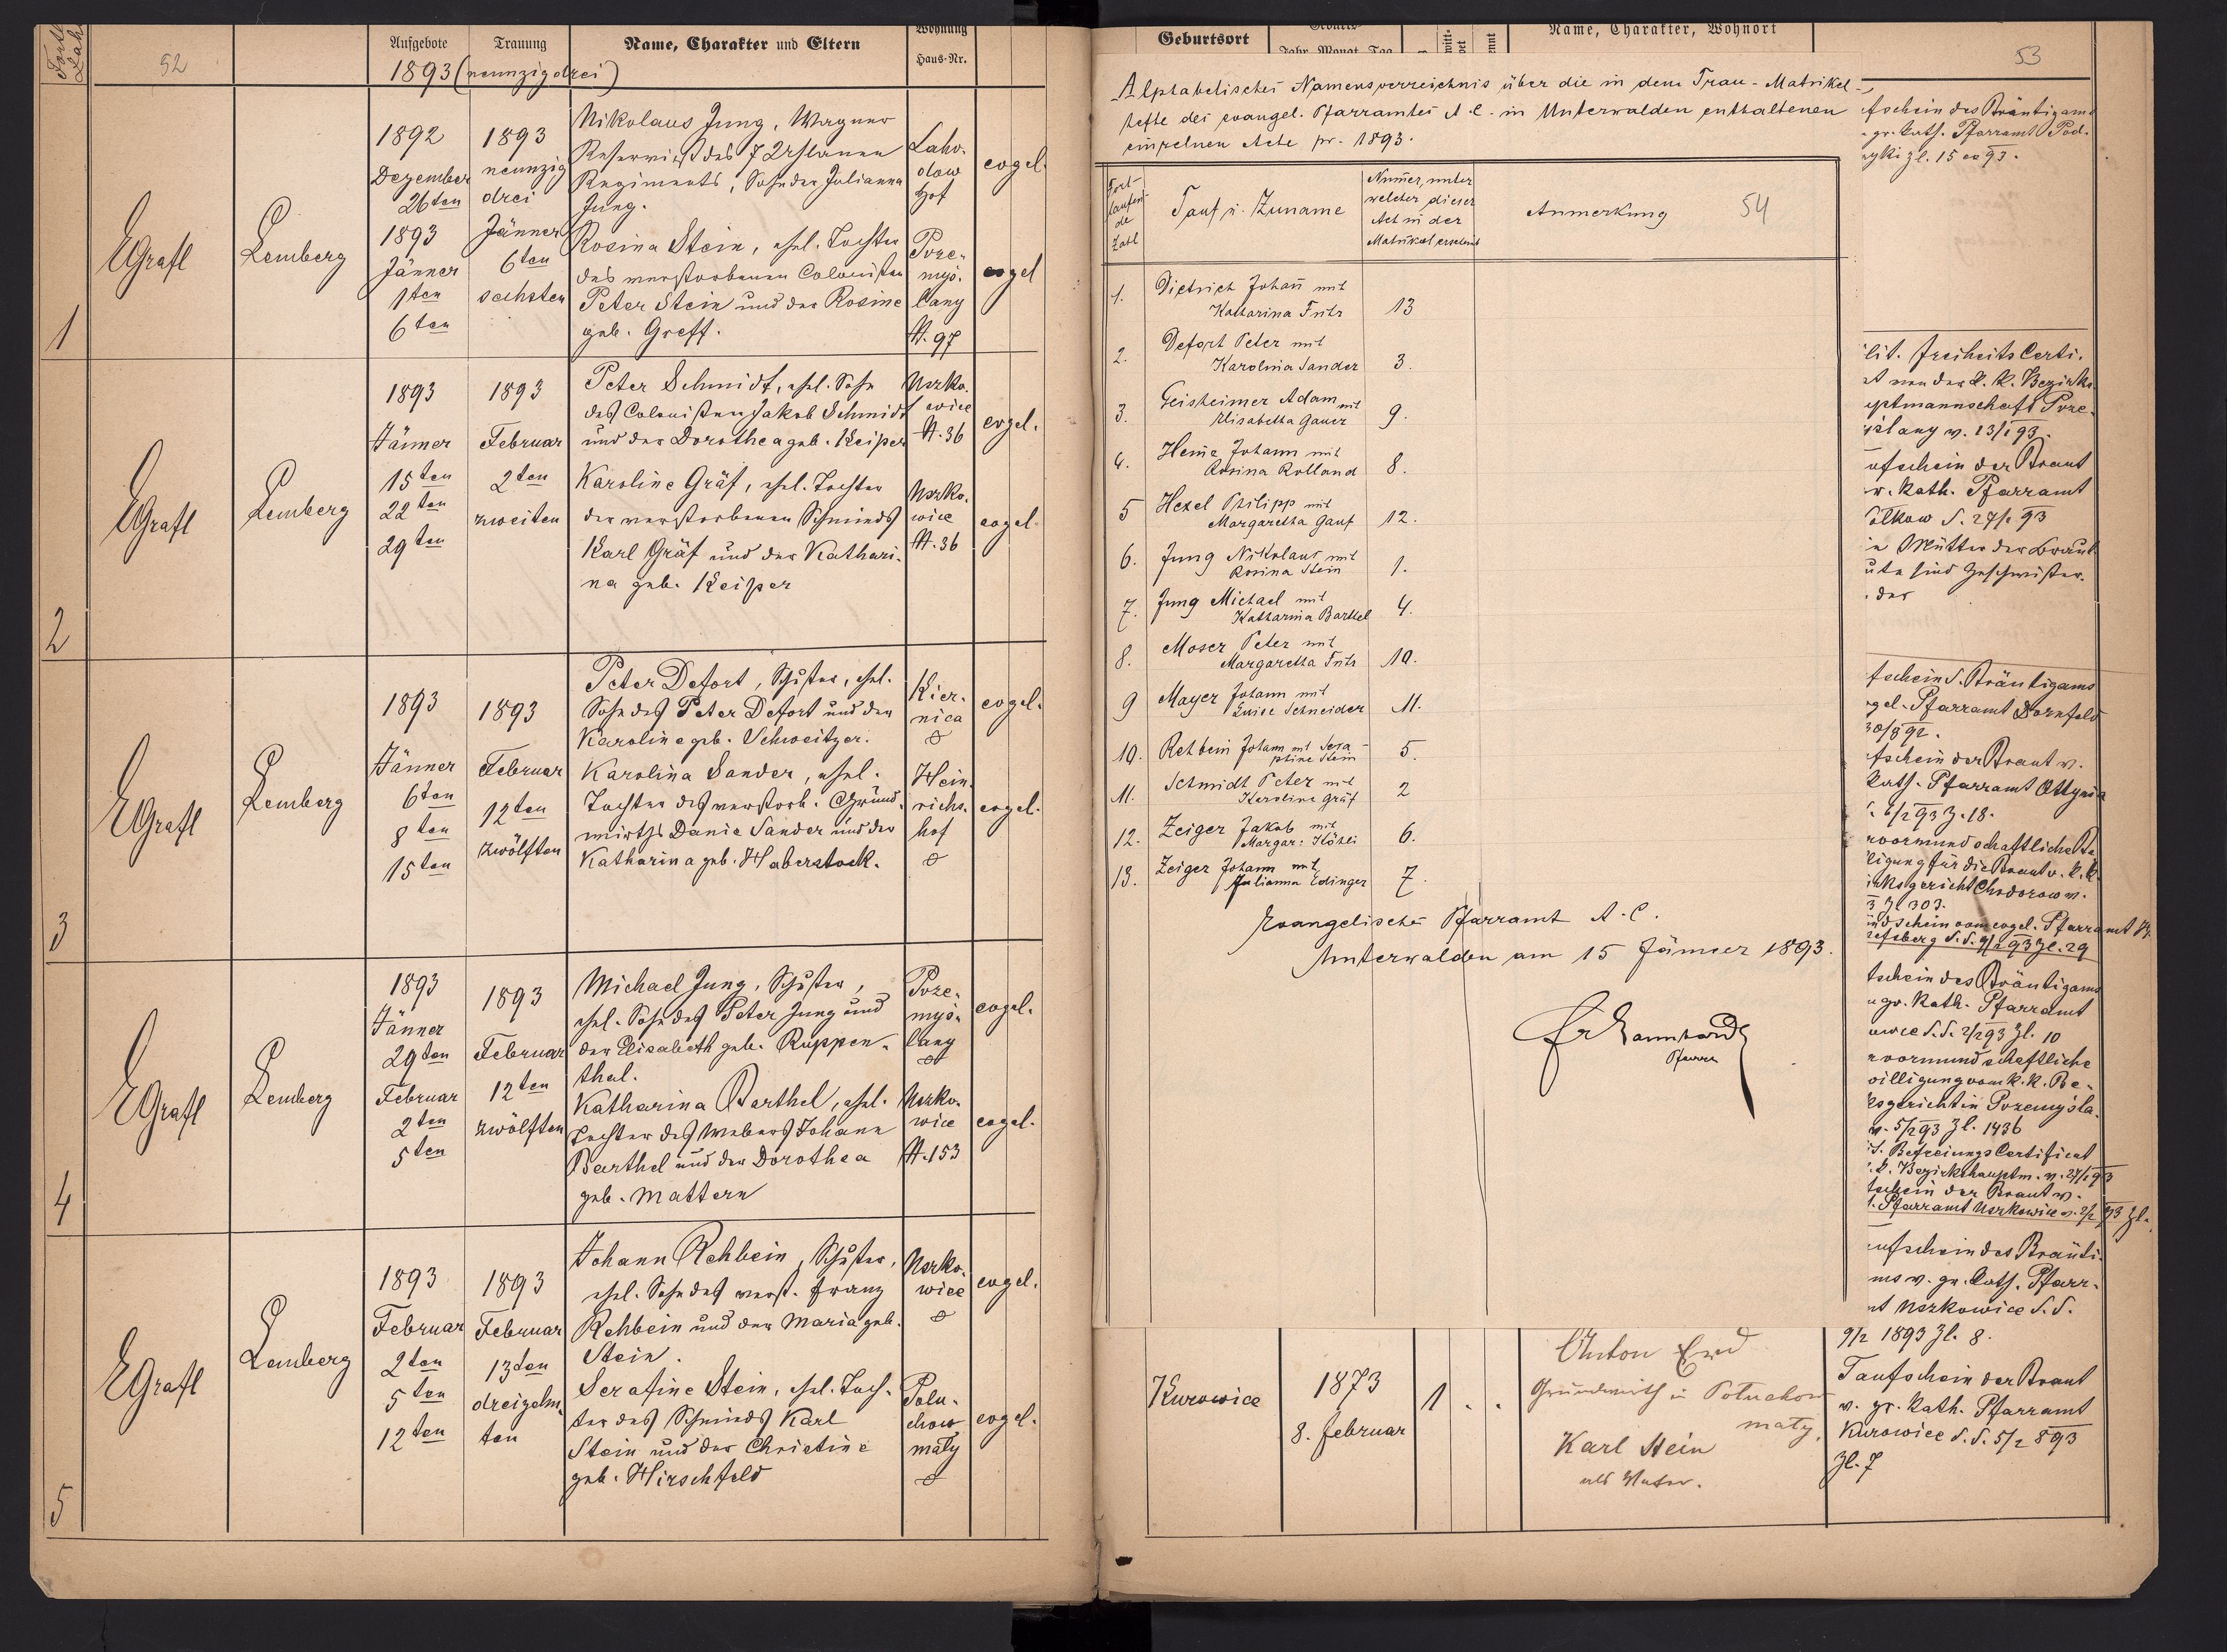 52
Aufgebote
Trauung
Name, Charakter und Eltern
Wohnung
Haus-Nr.
1893 (neunzigdrei)
1
EGrafl
Lemberg
1892
Dezember
26ten
1893
Jänner
1ten
6ten
1893
neunzig
drei
Jänner
6ten
sechsten
Nikolaus Jung, Wagner
Reservist des 7 Uhlanen
Regiments, Sohn der Julianna
Jung.
Laho-
dow
Hof
evgel.
Rosina Stein, ehel. Tochter
des verstorbenen Colonisten
Peter Stein und der Rosine
geb. Greff.
Prze-
myś-
lany
N. 97
evgel
2
EGrafl
Lemberg
1893
Jänner
15ten
22ten
29ten
1893
Februar
2ten
zweiten
Peter Schmidt, ehel. Sohn
des Colonisten Jakob Schmidt
und der Dorothea geb. Keiper
Uszko-
wice
N. 36
evgel.
Karoline Gräf, ehel. Tochter
des verstorbenen Schmieds
Karl Gräf und der Kathari-
na geb. Keiper
Uszko-
wice
N. 36
evgel.
3
EGrafl
Lemberg
1893
Jänner
6ten
8ten
15ten
1893
Februar
12ten
zwölften
Peter Defort, Schuster, ehel.
Sohn des Peter Defort und der
Karoline geb. Schweitzer.
Kier-
nica
evgel.
Karolina Sander, ehel.
Tochter des verstorb. Grund-
wirths Danie Sander und der
Katharina geb. Haberstock.
Hein-
richs-
hof
evgel.
4
EGrafl
Lemberg
1893
Jänner
29ten
Februar
2ten
5ten
1893
Februar
12ten
zwölften
Michael Jung, Schuster,
ehel. Sohn des Peter Jung und
der Elisabeth geb. Ruppen-
thal.
Prze-
myś-
lany
evgel.
Katharina Barthel, ehel.
Tochter des Webers Johann
Barthel und der Dorothea
geb. Mattern
Uszko-
wice
N. 153
evgel.
5
EGrafl
Lemberg
1893
Februar
2ten
5ten
12ten
1893
Februar
13ten
dreizehn-
ten
Johann Rehbein, Schuster,
ehel. Sohn des verst. Franz
Rehbein und der Maria geb.
Stein.
Uszko-
wice
evgel.
Serafine Stein, ehel. Toch-
ter des Schmieds Karl
Stein und der Christine
geb. Hirschfeld
Polu-
chow
mały
evgel.
Geburtsort
Jahr Monat Tag
Name, Charakter, Wohnort
53
Alphabetisches Namensverzeichnis über die in dem Trau-Matrikel-
hefte des evangel. Pfarramtes A. C. in Unterwalden enthaltenen
einzelnen Acte pr. 1893.
Fort-
laufen
de
Zahl
Tauf u. Zuname
Numer, unter
welcher dieser
Act in der
Matrikel erscheint
Anmerkung
54
1. Dietrich Johan mit
Katharina Fritz 13
2. Defort Peter mit
Karolina Sander 3.
3. Geisheimer Adam mit
Elisabetha Gauer 9.
4. Heme Johann mit
Rosina Rolland 8.
5 Hexel Philipp mit
Margaretha Gauf 12.
6. Jung Nikolaus mit
Rosina Stein 1.
7. Jung Michael mit
Katharina Barthel 4.
8. Moser Peter mit
Margaretha Fritz 10.
9 Mayer Johann mit
Luise Schneider 11.
10. Rehbein Johann mit Sera-
phine Stein 5.
11. Schmidt Peter mit
Karoline Gräf 2
12. Zeiger Jakob mit
Margar: Hösli 6.
13. Zeiger Johann mit
Julianna Edinger 7.
Evangelisches Pfarramt A. C.
Unterwalden am 15 Jänner 1893.
Pfarrer
fschein des Bräutigams
gr. kath. Pfarramt Pod-
zyki zl. 15 ex 93.
lit. Freiheits Certi.
at von der k. k. Bezirks
uptmannschaft Prze-
yślany v. 13/1 93.
ufschein der Braut
v. kath. Pfarramt
27/1 93
e Mütter der Braut
ute sind Geschwister.
der
fschein d. Bräutigams
gel. Pfarramt Dornfeld
30/8 92.
fschein der Braut v.
kath. Pfarramt Ottynia
6/2 93 Z. 18.
rvormundschaftliche Be
ligung für die Braut v. k. k.
irksgericht Chodorow v.
3 Zl 303.
ndschein vom evgel. Pfarramt
93 Zl. 29
fschein des Bräutigams
gr. kath. Pfarramt
owice d. d. 2/2 93 Zl. 10
rvormundschaftliche
willigung vom k. k. Be-
ksgericht in Przemyśla-
v. 5/2 93 Zl. 1436
Befreiungs Certificat
k. Bezirkshauptm. v. 27/1 93
fschein der Braut v.
Pfarramt Uszkowice v. 2/2 93 Zl.
ufschein des Bräuti-
ms v. gr. kath. Pfarr-
nt Uszkowice d. d.
9/2 1893 Zl. 8.
Kurowice
1873
8. Februar
1
Anton Erd
Grundwirth in Poluchow
mały.
Karl Stein
als Vater.
Taufschein der Braut
v. gr. kath. Pfarramt
Kurowice d. d. 5/2 893
Zl. 7